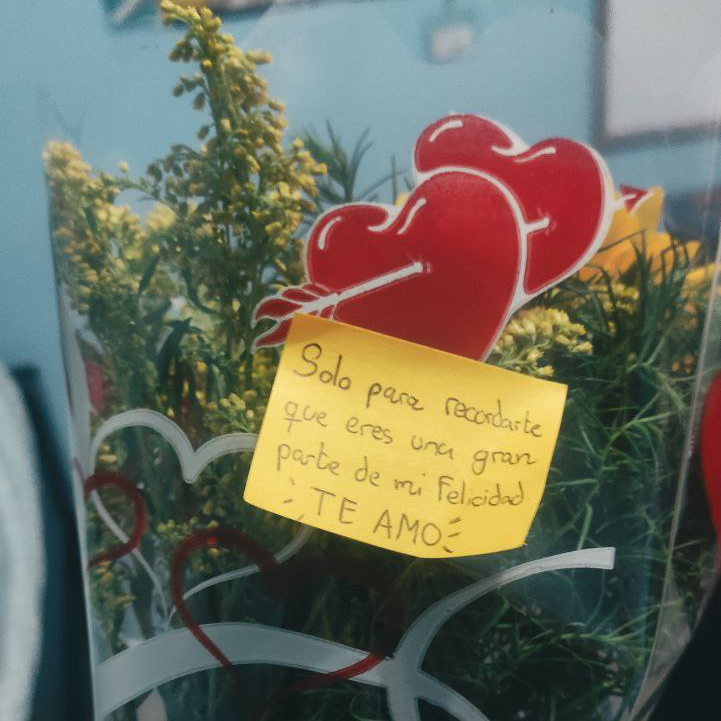 Solo para recordarte
que eres una gran
parte de mi Felicidad
TE AMO